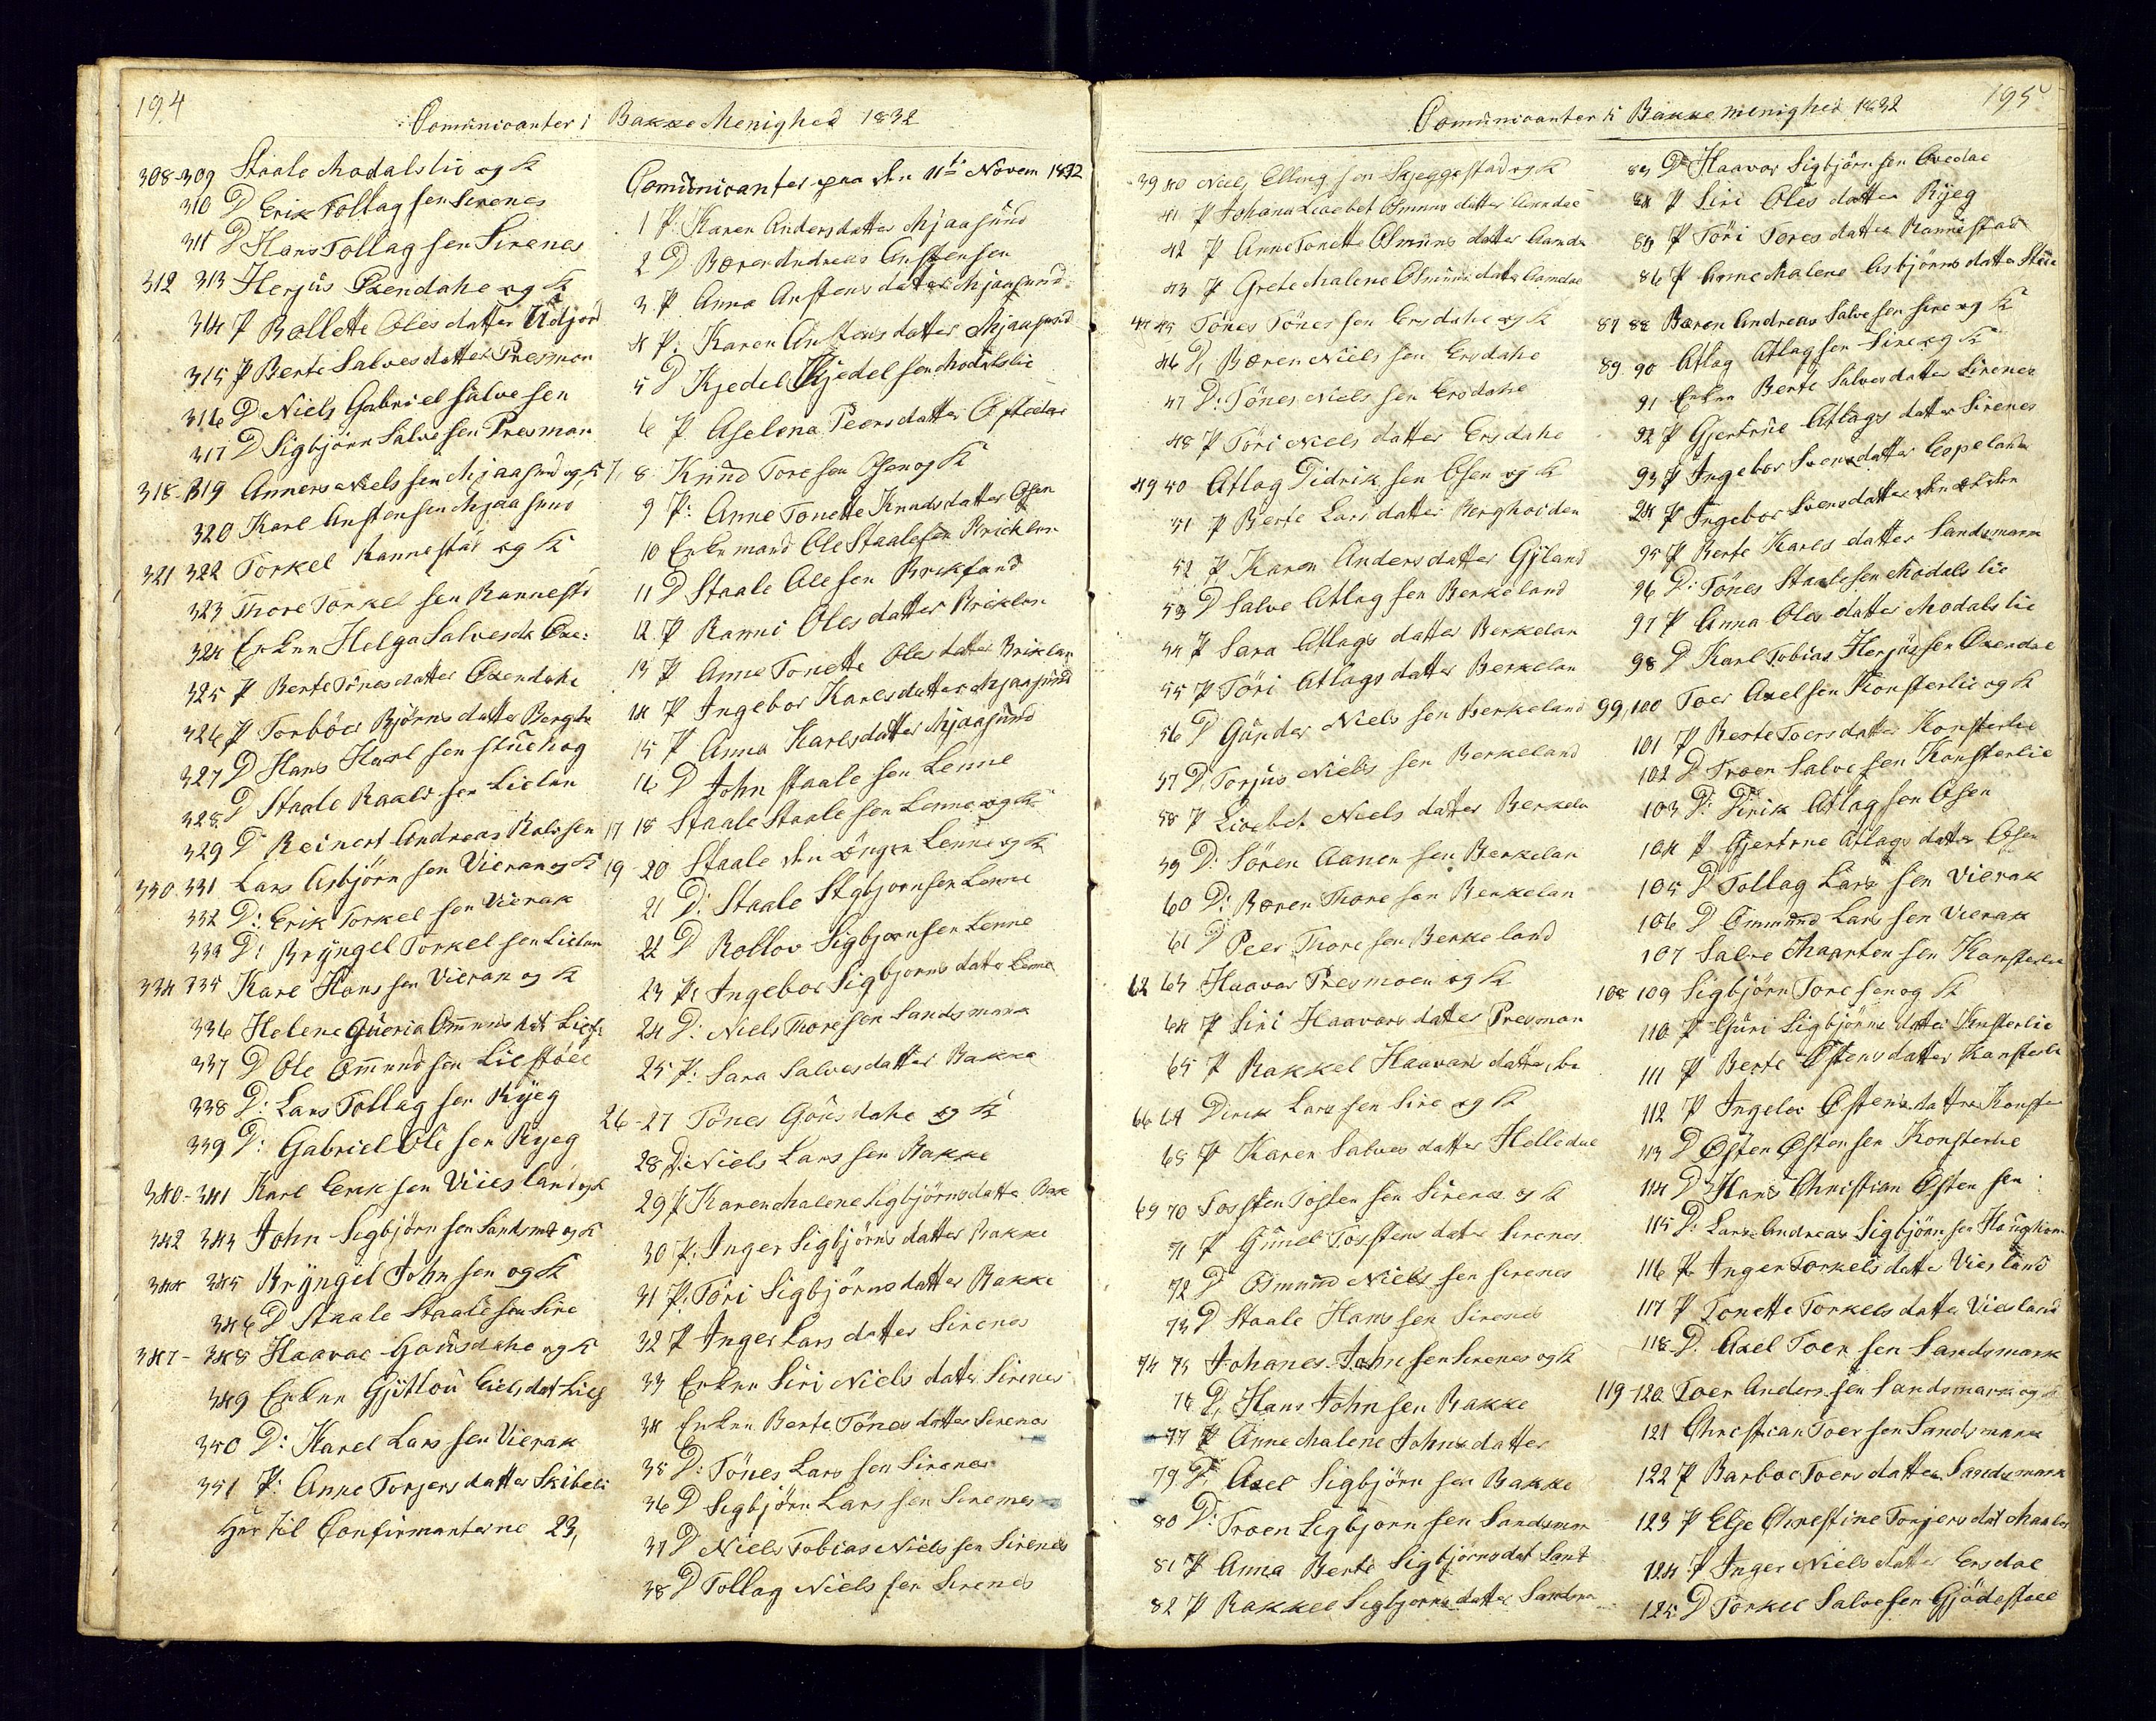 194
Comunicanter i Bakke Menighed 1832
308-309 Staale Modalslie og K
310 D Erik Tollagsen Sirenes
311 D Hans Tollagsen Sirenes
312 313 Herjus Oxendahe og K
314 P Bollette Olesdatter Udjor
315 P Berte Salvesdatter Presmon
316 D Niels Gabriel Salvesen
317 D Sigbjörn Salvesen Presman
318-319 Anners Nielssen Mjaasund og K
320 Karl Anstensen Mjaasund
321 322 Torkel Rannestad og K
323 Thore Torkelsen Rannestd
324 Enken Helga Salvesdt Oxe:
325 P Berte Tönesdatter Oxendahe
326 P Torböer Björnsdatter Bergh
327 D Hans Karlsen Stuehog
328 D Staale Raalvsen Lielan
329 D Reinert Andreas Rolvsen
330. 331 Lars Asbjörnsen Vieran og K
332 D: Erik Torkelsen Vierak
333 D: Bryngel Torkelsen Lielan
334 335 Karl Hanssen Vieran og K
336 Helene Gueria Ommunsdat Liest
337 D Ole Ommundsen Liestöel
338 D: Lars Tollagsen Ryeg
339 D: Gabriel Olesen Ryeg
340-341 Karl Eriksen Viiesland og K
342 343 John Sigbjörnsen Sandsmr og K
344 345 Bryngel Johnsen og K
346 D Staale Staalesen Sire
347-348 Haavar Gousdahe og K
349 Enken Gjitlou Eielsdat Lieg
350 D: Karel Larssen Vierak
351 P: Anne Torgersdatter Skibeli
Her til Confirmanterne 23,
Comunicanter paa den 11te Novem 1832
1 P: Karen Andersdatter Mjaasund
2 D Bæren Andreas Anstensen
3 P Anna Anstensdatter Mjaasund
4 P: Karen Anstensdatter Mjaasund
5 D Kjedel Kjedelsen Modalslie
6 P Aselena Peersdatter
7, 8 Knud Toresen Osen og K
9 P: Anne Tonette Knudsdatter Osen
10 Enkemand Ole Staalesen Bricklan
11 D Staale Olesen Brikland
12 P Ranni Olesdatter Briklan
13 P Anne Tonette Olesdatter Briklan
14 P Ingebor Karlsdatter Mjaasund
15 P Anna Karlsdatter Mjaasund
16 D John Staalesen Lenne
17 18 Staale Staalesen Lenne og K
19-20 Staale den öngre Lenne og K
21 D: Staale Sigbjornsen Lenne
22 D Rollov Sigbjornsen Lenne
23 P: Ingebor Sigbjornsdatter Lenne
24 D: Niels Thoresen Sandsmark
25 P: Sara Salvesdatter Bakke
26-27 Tönes Gousdahe og K
28 D: Niels Larssen Bakke
29 P Karen Malene Sigbjörnsdatter Bak
30 P: Inger Sigbjörnsdatter Bakke
31 P: Töri Sigbjörnsdatter Bakke
32 P Inger Larsdatter Sirenes
33 Enken Siri Nielsdatter Sirenes
34 Enken Berte Tönesdatter Sirenes
35 D: Tönes Larssen Sirenes
36 D Sigbjörn Larssen Sirenes
37 D Niels Tobias Nielssen Sirenes
38 D Tollag Nielssen Sirenes
Comunicanter i Bakke menighed 1832
195
39 40 Niels Ellingsen Skjeggestad og K
41 P Johana Lisebet Osmunsdatter Aamdae
42 P Anne Tonette Osmunsdatter Aamda
43 P Grete Malene Osmunsdatter Aamdae
44 45 Tönes Tönessen Ersdahe og K
46 D, Bæren Nielssen Ersdahe
47 D: Tönes Nielssen Ersdahe
48 P Töri Nielsdatter Ersdahe
49 50 Atlag Tidriksen Osen og K
51 P Berte Larsdatter Bergheiden
52 P Karen Andersdatter Gyland
53 D Salve Atlagsen Berkeland
54 P Sara Atlagsdatter Berkelan
55 P Töri Atlagsdatter Berkelan
56 D Gunder Nielssen Berkeland
57 D, Torjus Nielssen Berkeland
58 P Lisebet Nielsdatter Berkela
59 D: Sören Aanensen Berkelan
60 D: Bæren Thoresen Berkelan
61 D Peer Thoresen Berkeland
62 63 Haavar Presmoen og K
64 P Siri Haavarsdatter Presmon
65 P Rakkel Haavarsdatter,
66 67 Dirik Larssen Sire og K
68 P Karen Salvesdatter Helledae
69 70 Torsten Tostensen Sirenes og K
71 P Gunel Torstensdater Sirenes
72 D Osmund Nielssen Sirenes
73 D Staale Hanssen Sirenes
74 75 Johanes Johnsen Sirenes og K
76 D, Hans Johnsen Bakke
77 P Anne Malene Johnsdatter
79 D Axel Sigbjörnsen Bakke
80 D: Troen Sigbjornsen Sandsmar
81 P Anna Berte Sigbjörnsdat Sant
82 P Rakkel Sigbjornsdatter Sandsma
83 D Haavar Sigbjörnsen Ovedae
84 P Siri Olesdatter Ryeg
85 P Töri Toresdatter Rannestad
86 P Anne Malene Asbjörnsdatter Stue
87 88 Bæren Andreas Salvesen Sire og K
89. 90 Atlag Atlagsen Sire og K
91 Enken Berte Salvesdatter Sirenes
92 P Gjertrue Atlagsdatter Sirenes
93 P Ingebor Svensdatter Espeland
94 P Ingebor Svensdatter
95 P Berte Karlsdatter Sandsmark
96 D: Tönes Staalesen Modalslie
97 P Anna Olesdatter Modalslie
98 D Karl Tobias Herjussen Oxendae
99,100 Toer Axelsen Konsterlie og K
101 P Berte Toersdatter Konsterlie
102 D Troen Salvesen Konsterlie
103 D: Dirik Atlagsen Osen
104 P Gjertrue Atlagsdatter Osen
105 D Tollag Larssen Vierak
106 D Ommund Larssen Vierak
107 Salve Maartensen Konsterlie
108 109 Sigbjörn Toresen og K
110 P Guri Sigbjörnsdatter Knsterlie
111 P Berte Østensdatter Konsterli
112 P Ingebor Østensdatter Konster
113 D Østen Østensen Konsterlie
114 D Hans Christian Østensen
115 D: Lars Andreas Sigbjörnsen Haughom
116 P. Inger Torkelsdatter Viesland
117 P Tonette Torkelsdatter Viesland
118 D. Axel Toersen Sandsmark
119-120 Toer Anderssen Sandsmark og K
121 Christian Toersen Sandsmark
122 P Barboe Toersdatter Sandsmark
123 P Else Chrestine Torjersdat
124 P Inger Nielsdatter Ersdae
125 D Torkel Salvesen Gjödestöel